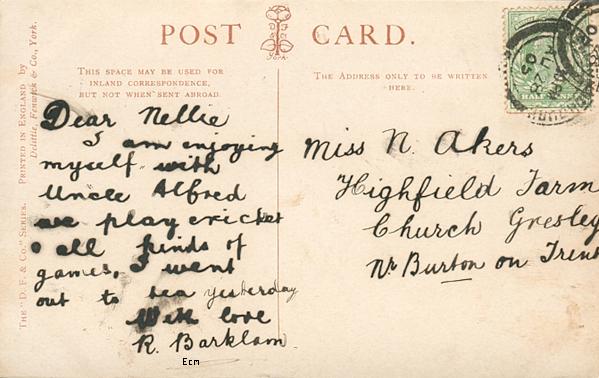 POST CARD.
York.
THIS SPACE MAY BE USED FOR
INLAND CORRESPONDENCE,
BUT NOT WHEN SENT ABROAD.
THE ADDRESS ONLY TO BE WRITTEN
HERE.
HALF PENNY
Dear Nellie
I am enjoying
myself with
Uncle Alfred
we play cricket
& all kinds of
games, I went
out to tea yesterday
With love
R. Barklam
Ecm
Miss N. Akers
Highfield Farm
Church Gresley
Nr Burton on Trent
THE "D. F. & CO." SERIES. PRINTED IN ENGLAND by
Delittle, Fenwick & Co., York.